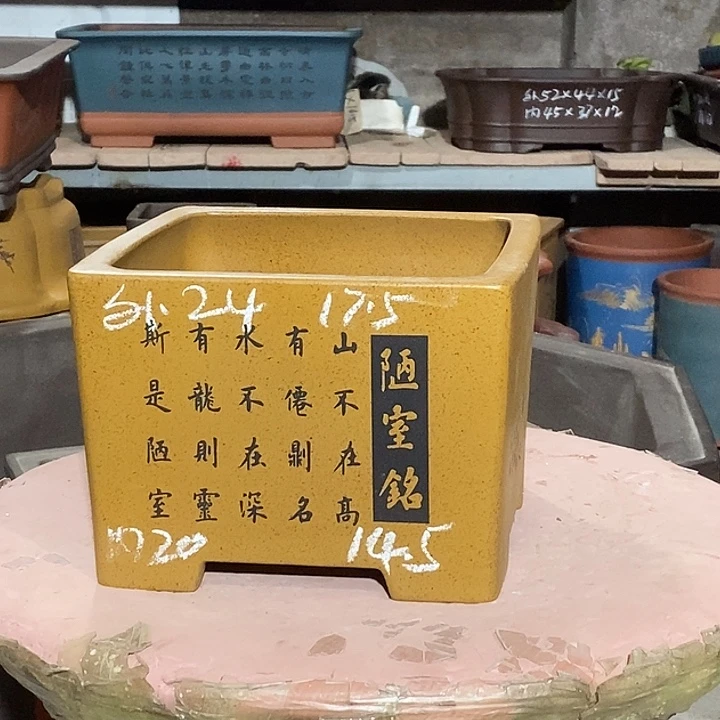 陋室銘
山不在高
有僊則名
水不在深
有龍則靈
斯是陋室
外.24 17.5
内20 14.5
外52×44×15
内45×37×12